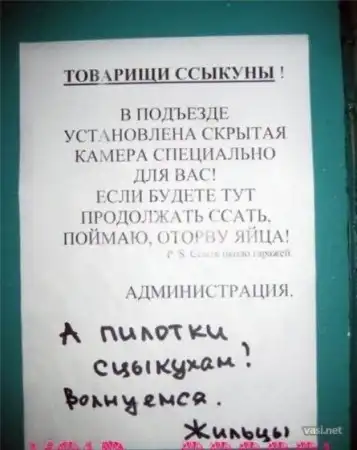 ТОВАРИЩИ ССЫКУНЫ !
В ПОДЪЕЗДЕ
УСТАНОВЛЕНА СКРЫТАЯ
КАМЕРА СПЕЦИАЛЬНО
ДЛЯ ВАС!
ЕСЛИ БУДЕТЕ ТУТ
ПРОДОЛЖАТЬ ССАТЬ,
ПОЙМАЮ, ОТОРВУ ЯЙЦА!
P. S. около гаражей
АДМИНИСТРАЦИЯ.
А пилотки
сцыкухам?
Волнуемся.
Жильцы
vasi.net